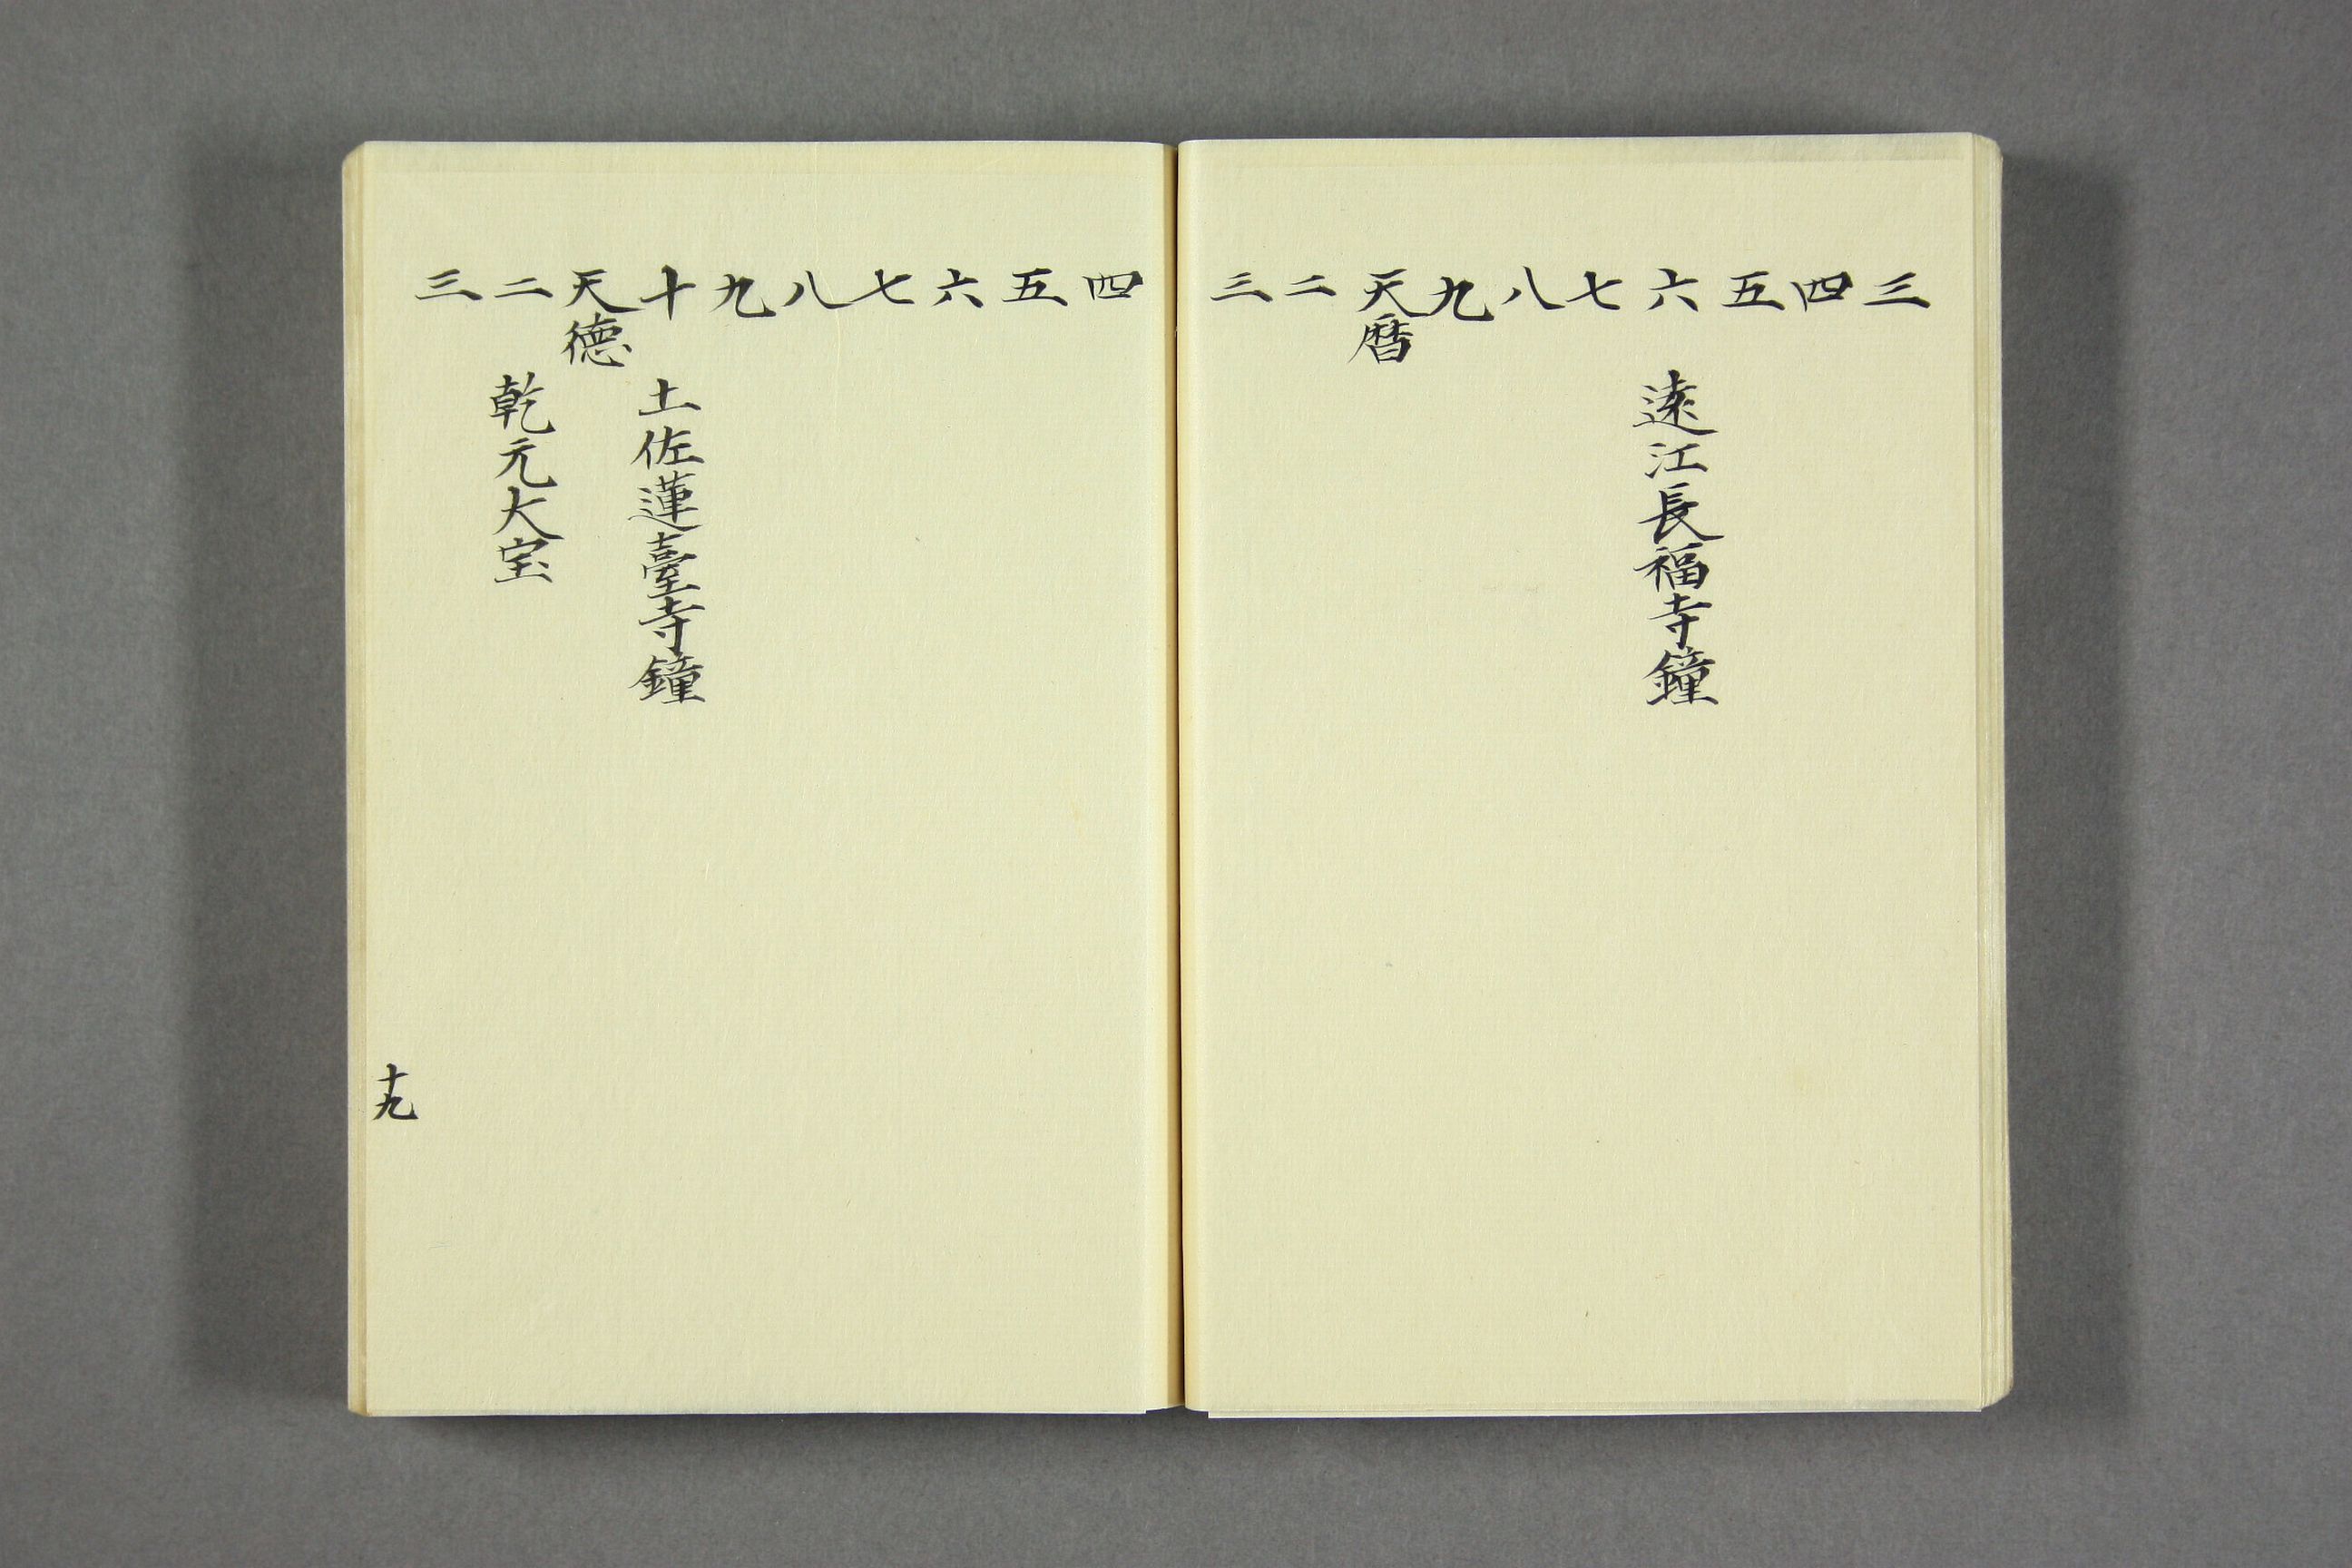 三
四
五
六 遠江長福寺鐘
七
八
九
天暦
二
三
四
五
六
七
八
九
十 土佐蓮臺寺鐘
天徳
二 乾元大宝
三
十九